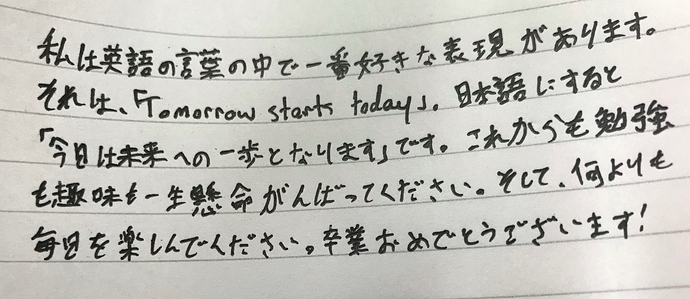 私は英語の言葉の中で一番好きな表現があります。
それは、「Tomorrow starts today」。日本語にすると
「今日は未来への一歩となります」です。これからも勉強
も趣味も一生懸命がんばってください。そして、何よりも
毎日を楽しんでください。卒業おめでとうございます!